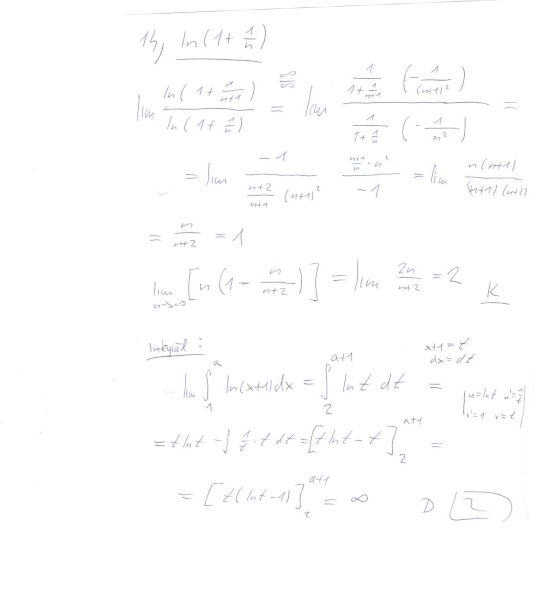 14, ln(1 + 1/n)
lim ln(1 + 1/(n+1)) / ln(1 + 1/n) =^(∞/∞) lim [1/(1 + 1/(n+1)) (-1/(n+1)²)] / [1/(1 + 1/n) (-1/n²)] =
= lim -1 / [(n+2)/(n+1) (n+1)²] · [(n+1)/n · n²] / -1 = lim n(n+1) / (n+1)(n+2)
= n/(n+2) = 1
lim n→∞ [n(1 - n/(n+2))] = lim 2n/(n+2) = 2 K
Integrál:
x+1 = t
dx = dt
lim ∫₁^a ln(x+1)dx = ∫₂^(a+1) ln t dt =
|u = ln t u' = 1/t
v' = 1 v = t|
= t ln t - ∫ 1/t · t dt = [t ln t - t]₂^(a+1) =
= [t(ln t - 1)]₂^(a+1) = ∞ D 2